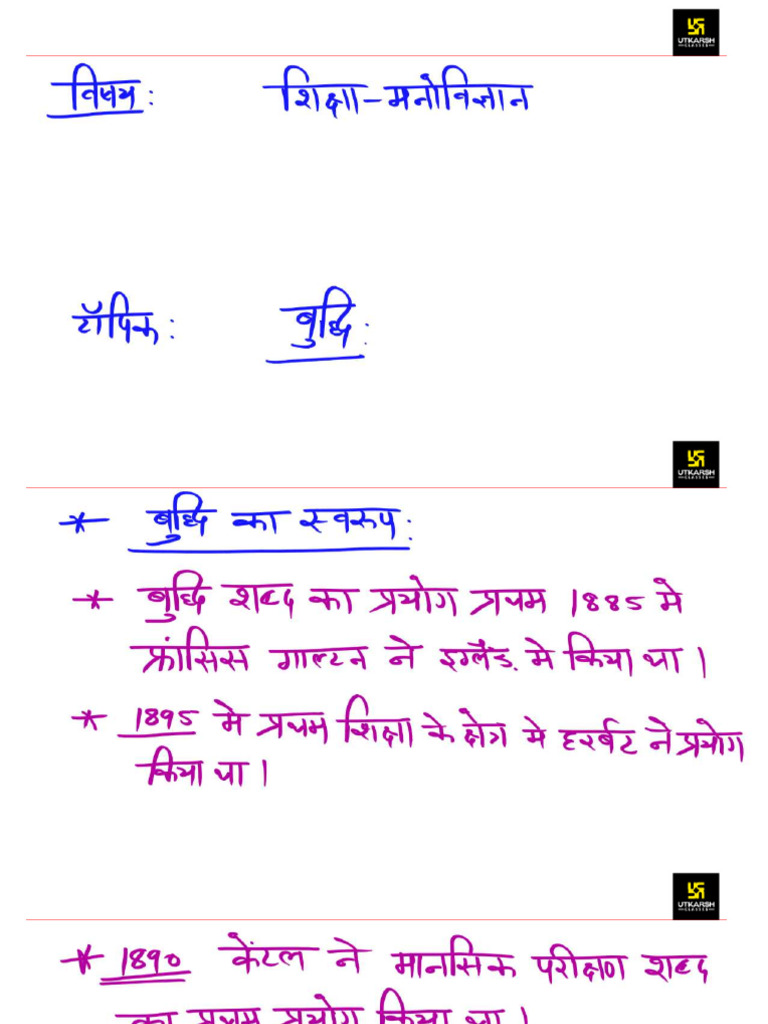 UTKARSH
CLASSES
विषय: शिक्षा-मनोविज्ञान
टॉपिक: बुद्धि:
UTKARSH
CLASSES
* बुद्धि का स्वरुप:
* बुद्धि शब्द का प्रयोग प्रथम 1885 मे
फ्रांसिस गाल्टन ने इग्लैंड. मे किया था।
* 1895 मे प्रथम शिक्षा के क्षेत्र मे हरर्बट ने प्रयोग
किया था।
UTKARSH
CLASSES
* 1890 केंटल ने मानसिक परीक्षण शब्द
का प्रथम प्रयोग किया था।